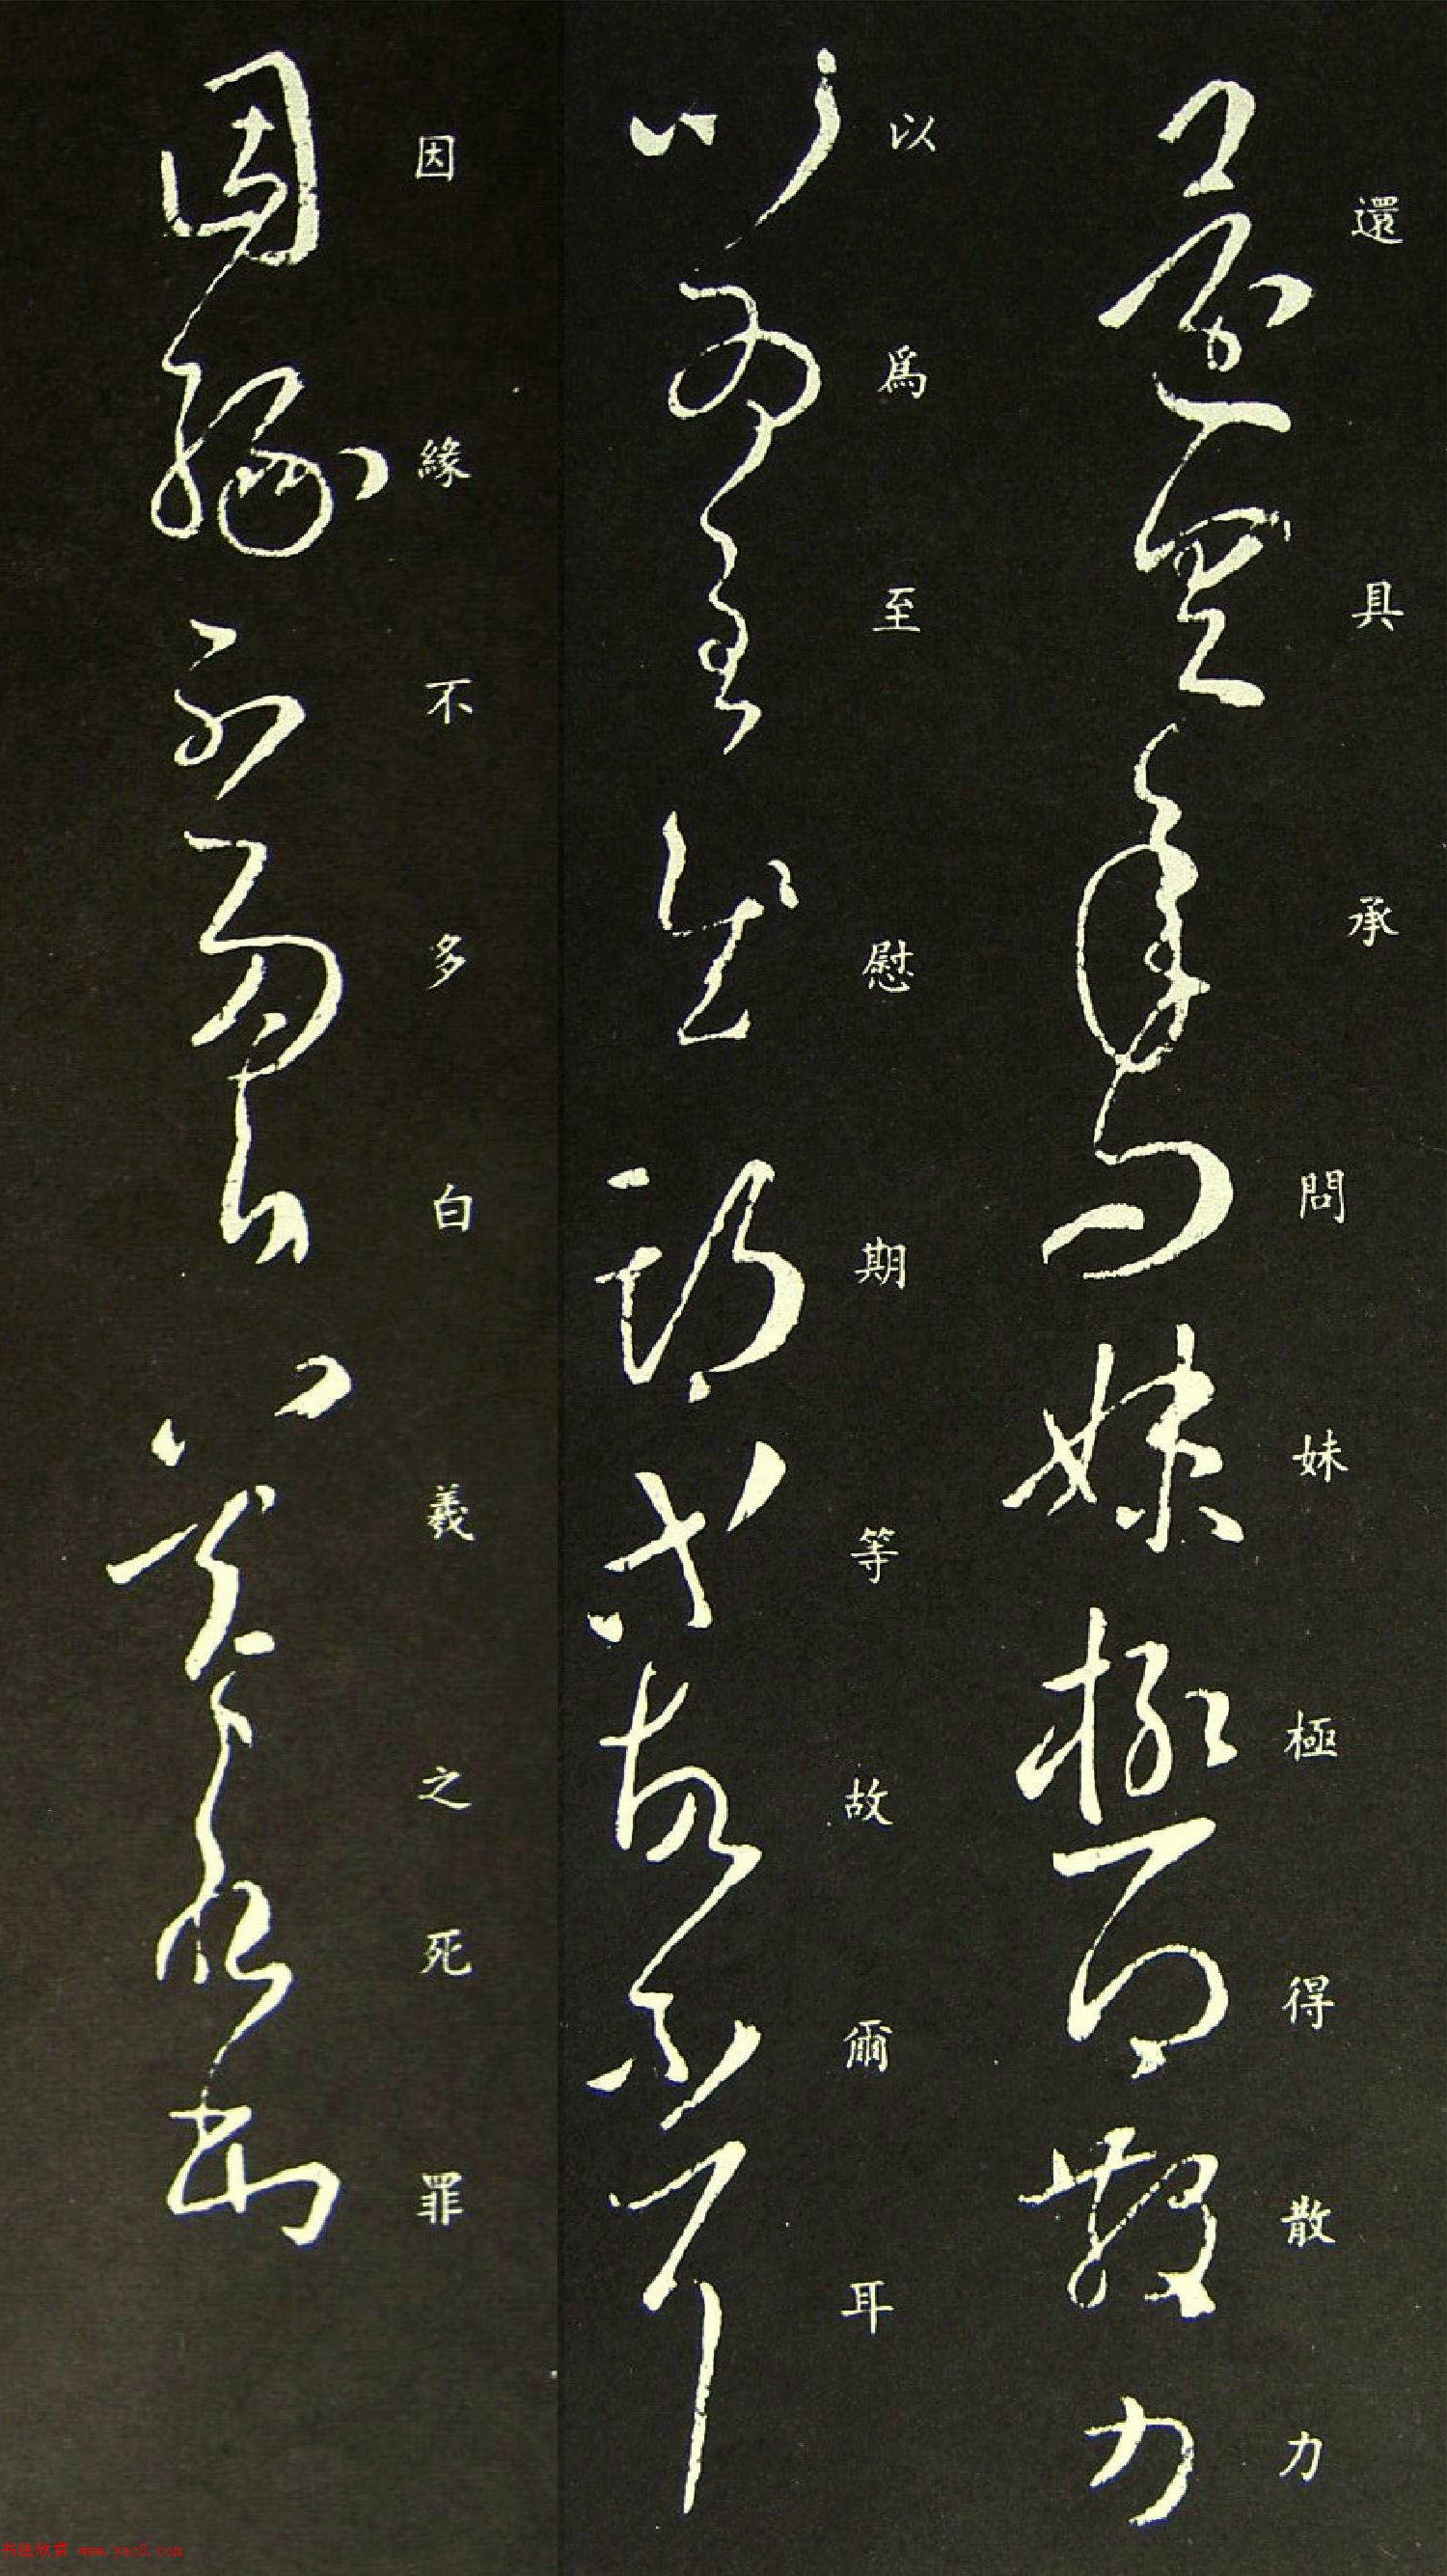 還具承問妹極得散力
以爲至慰期等故爾耳
因緣不多白羲之死罪
书法欣赏 www.yac8.com